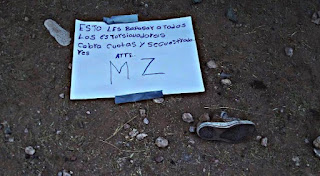 ESTO LES BaPaSar a Todos
Los exTorsionadores
Cobra Cuotas y secuestrado
res
ATT:.
M Z